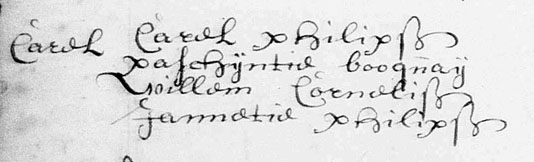 Carel Carel philipss
paschijntie booqnaij
Willem Corneliss
Jannetie philipss